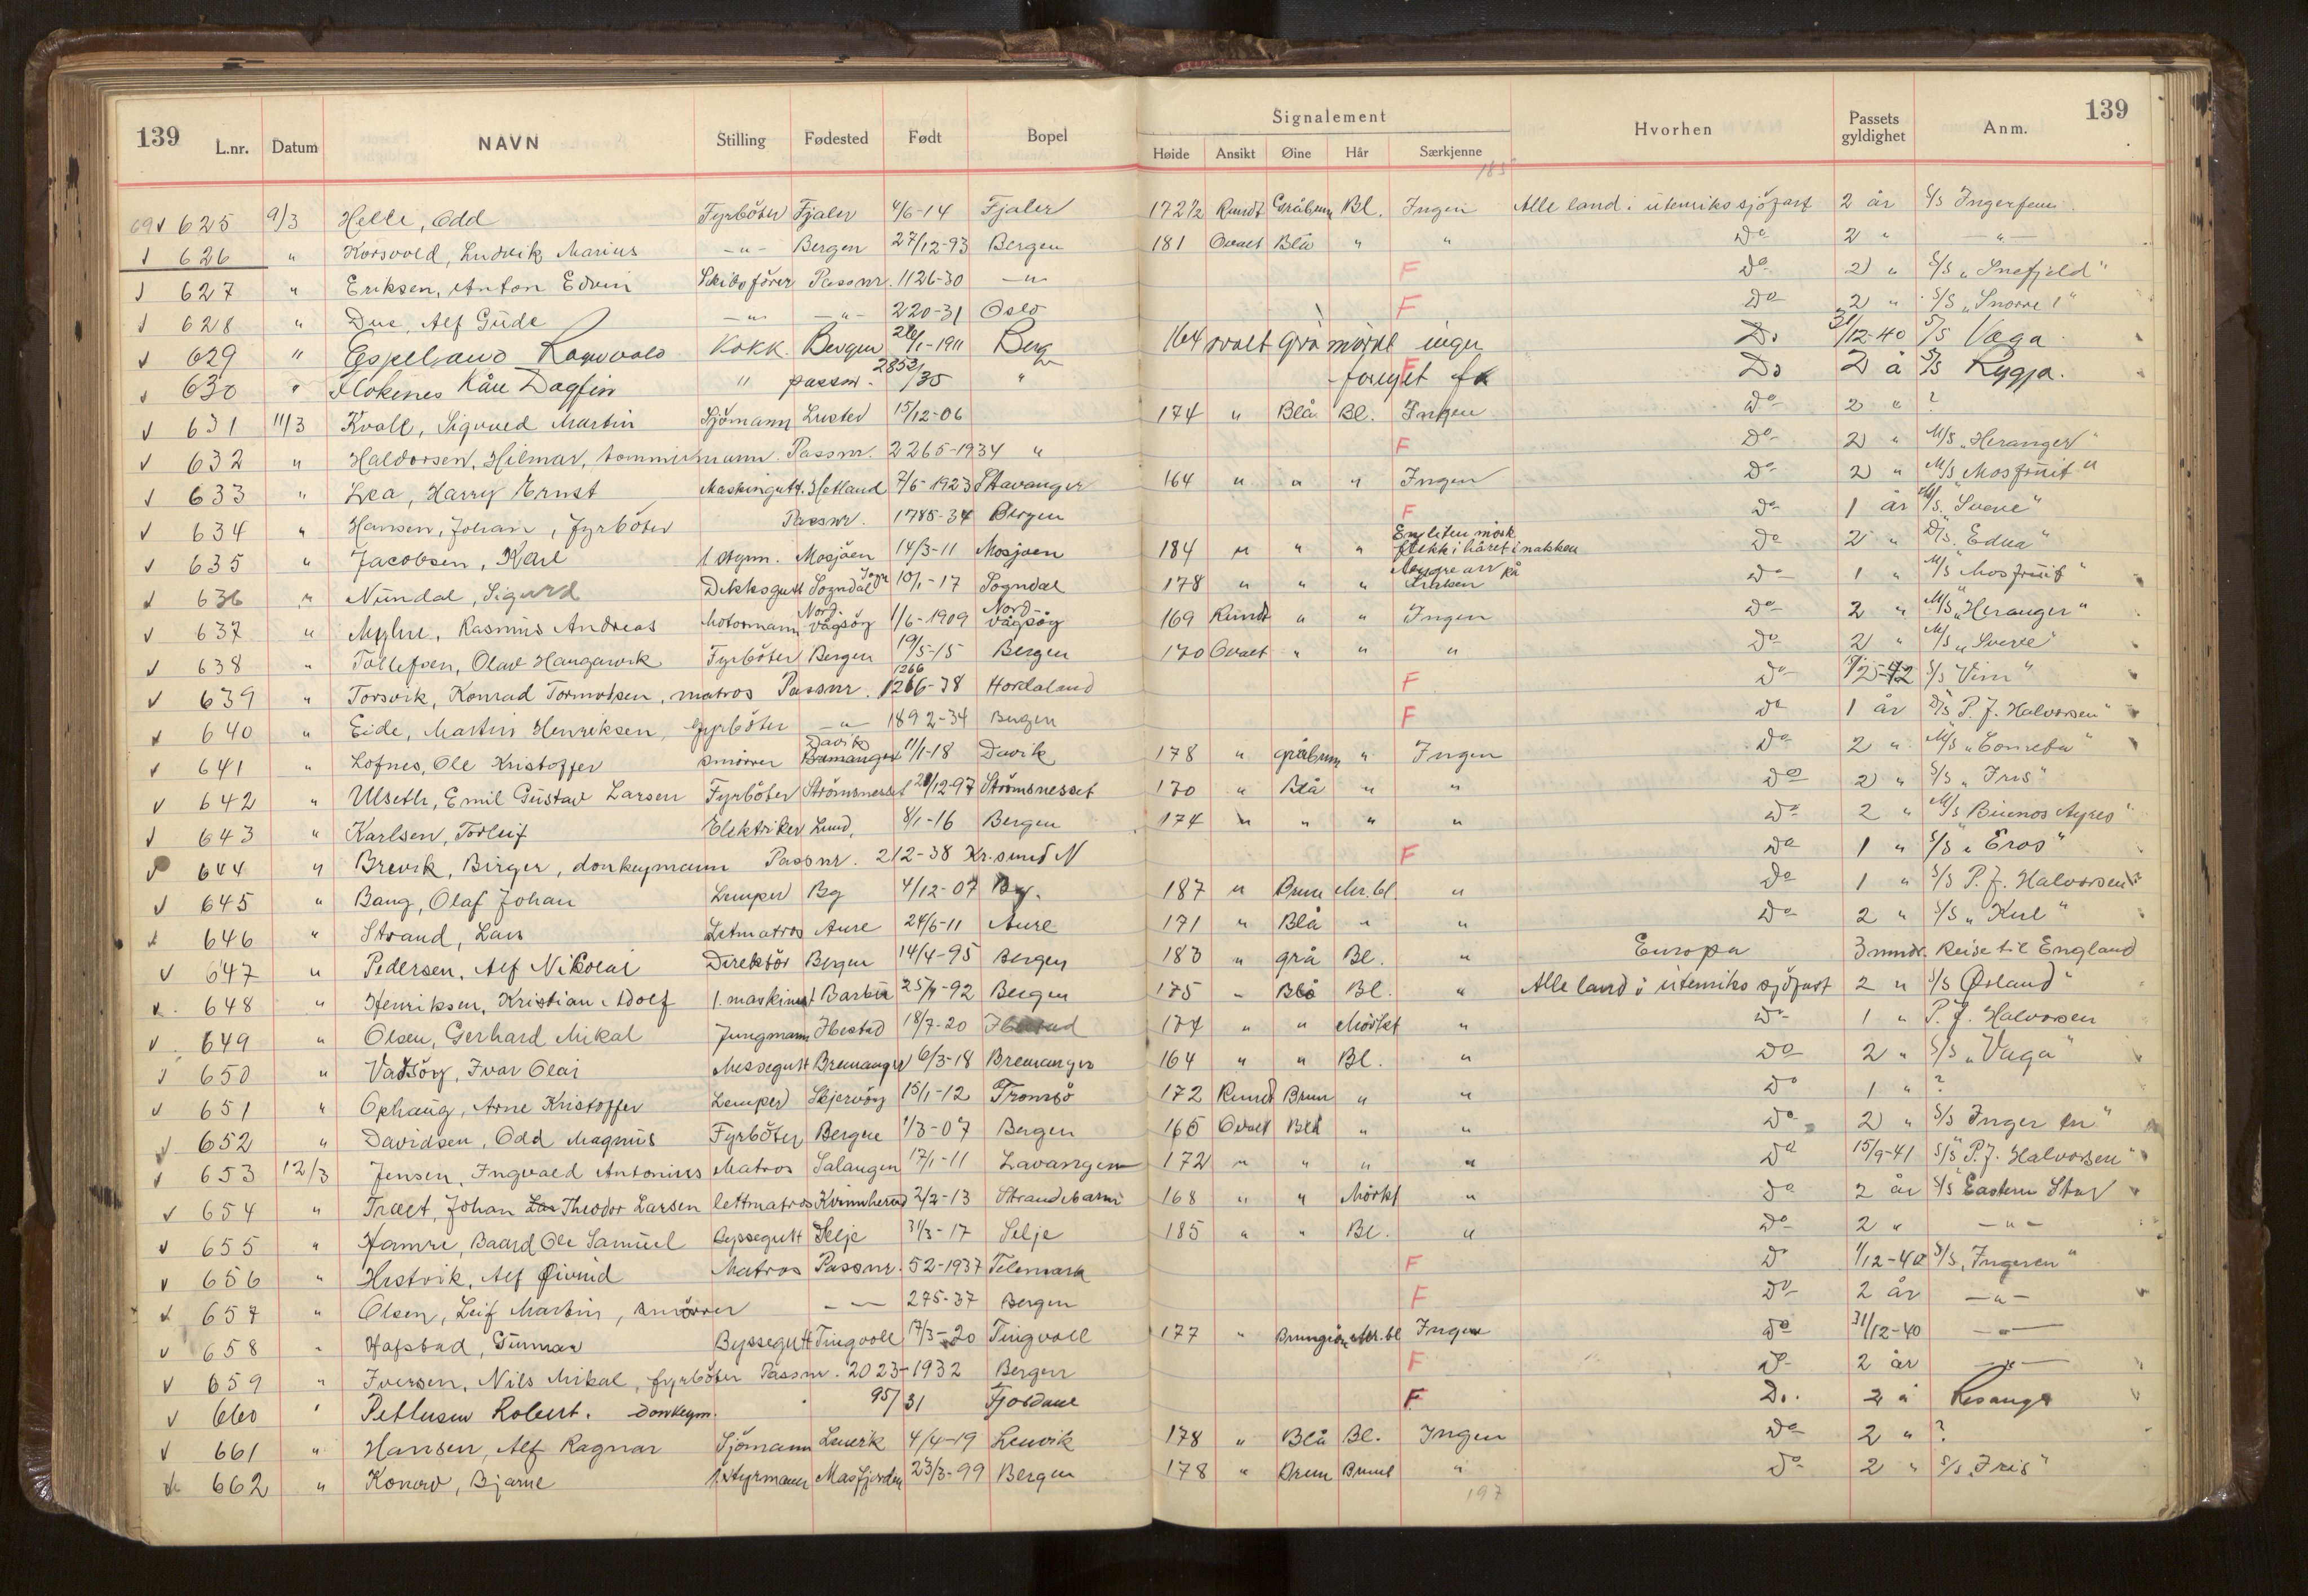 139 L.nr. Datum NAVN Stilling Fødested Født Bopel Signalement Høide Ansikt Øine Hår Særkjenne Hvorhen Passets gyldighet Anm. 139
185
69 √ 625 9/3 Helle, Odd Fyrböter Fjaler 4/6-14 Fjaler 172½ Rundt Gråbrun Bl. Ingen Alle land i utenriks sjöfart 2 år S/s Ingerfem
626 " Korsvold, Ludvik Marius -"- Bergen 27/12-93 Bergen 181 Ovalt Blå " " Do 2 " -"-
627 " Eriksen, Anton Edvin Skibsförer Passnr. 1126-30 -"- F Do 2 " S/s „Snefjeld"
628 " Due, Alf Gude -"- -"- 220-31 Oslo F Do 2 " S/s „Snorre I"
√ 629 " Espeland Ragnvald Kokk Bergen 26/1-1911 Berg 164 ovalt grå mörkt ingen Do 31/12-40 S/s Vaga
630 " Flokenes Kåre Dagfin " passnr. 2853/35 " F fornyet Do 2 å S/s Rygja.
√ 631 11/3 Kvall, Sigvald Martin Sjömann Luster 15/12-06 174 " Blå Bl. Ingen Do 2 " ?
√ 632 " Haldorsen, Hilmar, tömmermann. Passnr. 2265-1934 " F Do 2 " M/s „Heranger"
633 " Lea, Harry Ernst Maskingutt. Hetland 7/6-1923 Stavanger 164 " " " Ingen Do 2 " M/s Mosfruit"
√ 634 " Hansen, Johan, fyrböter Passnr. 1785-34 Bergen F Do 1 år M/s. „Sverre"
√ 635 " Jacobsen, Karl 1. styrm. Mosjöen 14/3-11 Mosjoen 184 " " " En liten mörk flekk i håret i nakken Do 2 " D/s. Edna"
636 " Nundal, Sigurd Dekksgutt Sogndal Sogn 10/1-17 Sogndal 178 " " " arr på Do 1 " M/s Mosfruit"
√ 637 " Myhre, Rasmus Andreas Motormann Nord-Vågsöy 1/6-1909 Nord-Vågsöy 169 Rundt " " Ingen Do 2 " M/s „Heranger"
√ 638 " Tollefsen, Olav Haugarvik Fyrböter Bergen 19/5-15 Bergen 170 Ovalt " " " Do 2 " M/s „Sverre"
√ 639 " Torsvik, Konrad Tormodsen, matros Passnr. 1266-38 Hordaland F Do S/s Vim"
640 " Eide, Martin Henriksen, fyrböter -"- 1892-34 Bergen F Do 1 år D/s P. J. Halvorsen"
√ 641 " Lofnes, Ole Kristoffer smörer Davik 11/1-18 Davik 178 " gråbrun " Ingen Do 2 " M/s „Cometa"
√ 642 " Ulseth, Emil Gustav Larsen Fyrböter Strömsnesset 21/12-97 Strömsnesset 170 " Blå " " Do 2 " S/s „Iris"
643 " Karlsen, Torleif Elektriker Lund, 8/1-16 Bergen 174 " " " " Do 2 " M/s Buenos Ayres"
644 " Brevik, Birger, donkeymann Passnr. 212-38 Kr.sund N F Do 1 " S/s „Eros"
√ 645 " Bang, Olaf Johan Lemper Bg 4/12-07 Bg. 187 " Brun Mr.bl. " Do 1 " S/s P. J. Halvorsen"
646 " Strand, Lars Letmatros Aure 24/6-11 Aure 171 " Blå " " Do 2 " S/s „Kul"
√ 647 " Pedersen, Alf Nikolai Direktör Bergen 14/4-95 Bergen 183 " grå Bl. " Europa 3 mndr. Reise til England
648 " Henriksen, Kristian Adolf 1. maskinist Barbu 25/9-92 Bergen 175 " Blå Bl. " Alle land i utenriks sjöfart 2 " S/s Ørland"
√ 649 " Olsen, Gerhard Mikal Jungmann Ibestad 18/7-20 Ibestad 174 " " Mörkt " Do 1 " P. J. Halvorsen
650 " Vadsöy, Ivar Olai Messegutt Bremanger 6/3-18 Bremanger 164 " " Bl. " Do 2 " S/s „Vaga"
√ 651 " Ophaug, Arne Kristoffer Lemper Skjervöy 15/1-12 Tromsö 172 Rundt Brun " " Do 1 " ?
652 " Davidsen, Odd Magnus Fyrböter Bergen 1/3-07 Bergen 165 Ovalt Blå " " Do 2 " S/s Inger en"
√ 653 12/3 Jensen, Ingvald Antonius Matros Salangen 17/1-11 Lavangen 172 " " " " Do 15/9-41 S/s P. J. Halvorsen"
√ 654 " Træet, Johan Theodor Larsen lettmatros Kvinnherad 2/2-13 Strandebarm 168 " " Mörkt " Do 2 år S/s Eastern Star
√ 655 " Hamre, Baard Ole Samuel Byssegutt Selje 31/3-17 Selje 185 " " Bl. " Do 2 " -"-
√ 656 " Hustvik, Alf Øivind Matros Passnr. 52-1937 Telemark F Do 1/12-40 S/s „Ingeren"
657 " Olsen, Leif Martin, smörer -"- 275-37 Bergen F Do 2 år -"-
√ 658 " Hafstad, Gunnar Byssegutt Tingvoll 17/3-20 Tingvoll 177 " Brungrå Mr.bl Ingen Do 31/12-40 -"-
√ 659 " Iversen, Nils Mikal, fyrböter Passnr. 2023-1932 Bergen F Do 2 år -"-
√ 660 " Pettersen Robert. Donkeym. 95/31 Fjordane F Do. 2 å
√ 661 " Hansen, Alf Ragnar Sjömann Lenvik 4/4-19 Lenvik 178 " Blå Bl. Ingen Do 2 " ?
662 " Konow, Bjarne 1. styrmann Masfjorden 23/3-99 Bergen 178 " Brun Brunt " Do 2 " S/s „Iris"
197